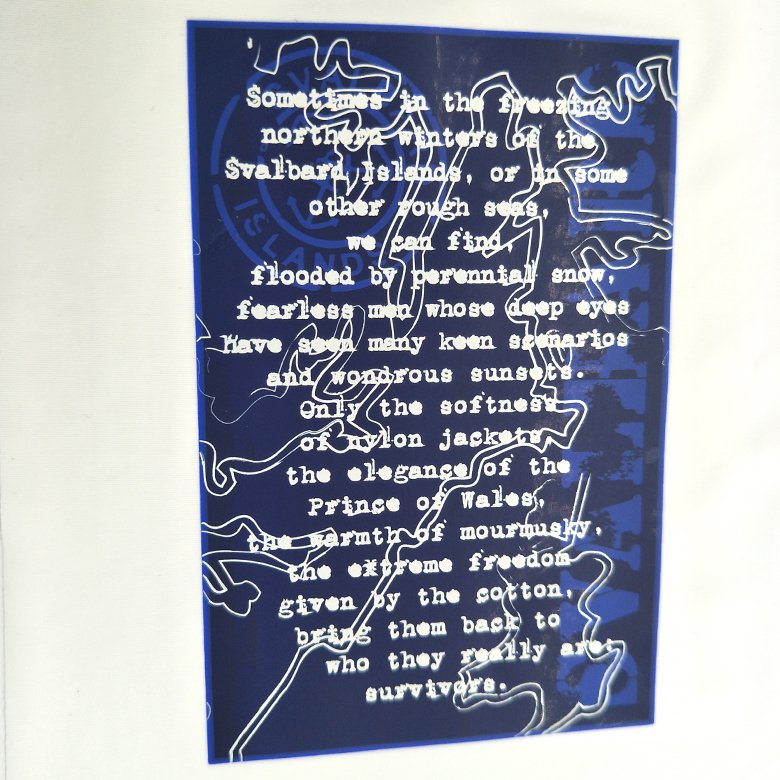 Sometimes in the freezing
northern winters of the
Svalbard Islands, or in some
other rough seas,
we can find,
flooded by perennial snow,
fearless men whose deep eyes
Have seen many keen scenarios
and wondrous sunsets.
Only the softness
of nylon jackets,
the elegance of the
Prince of Wales,
the warmth of mourmusky,
the extreme freedom
given by the cotton,
bring them back to
who they really are:
survivors.
ISLANDS